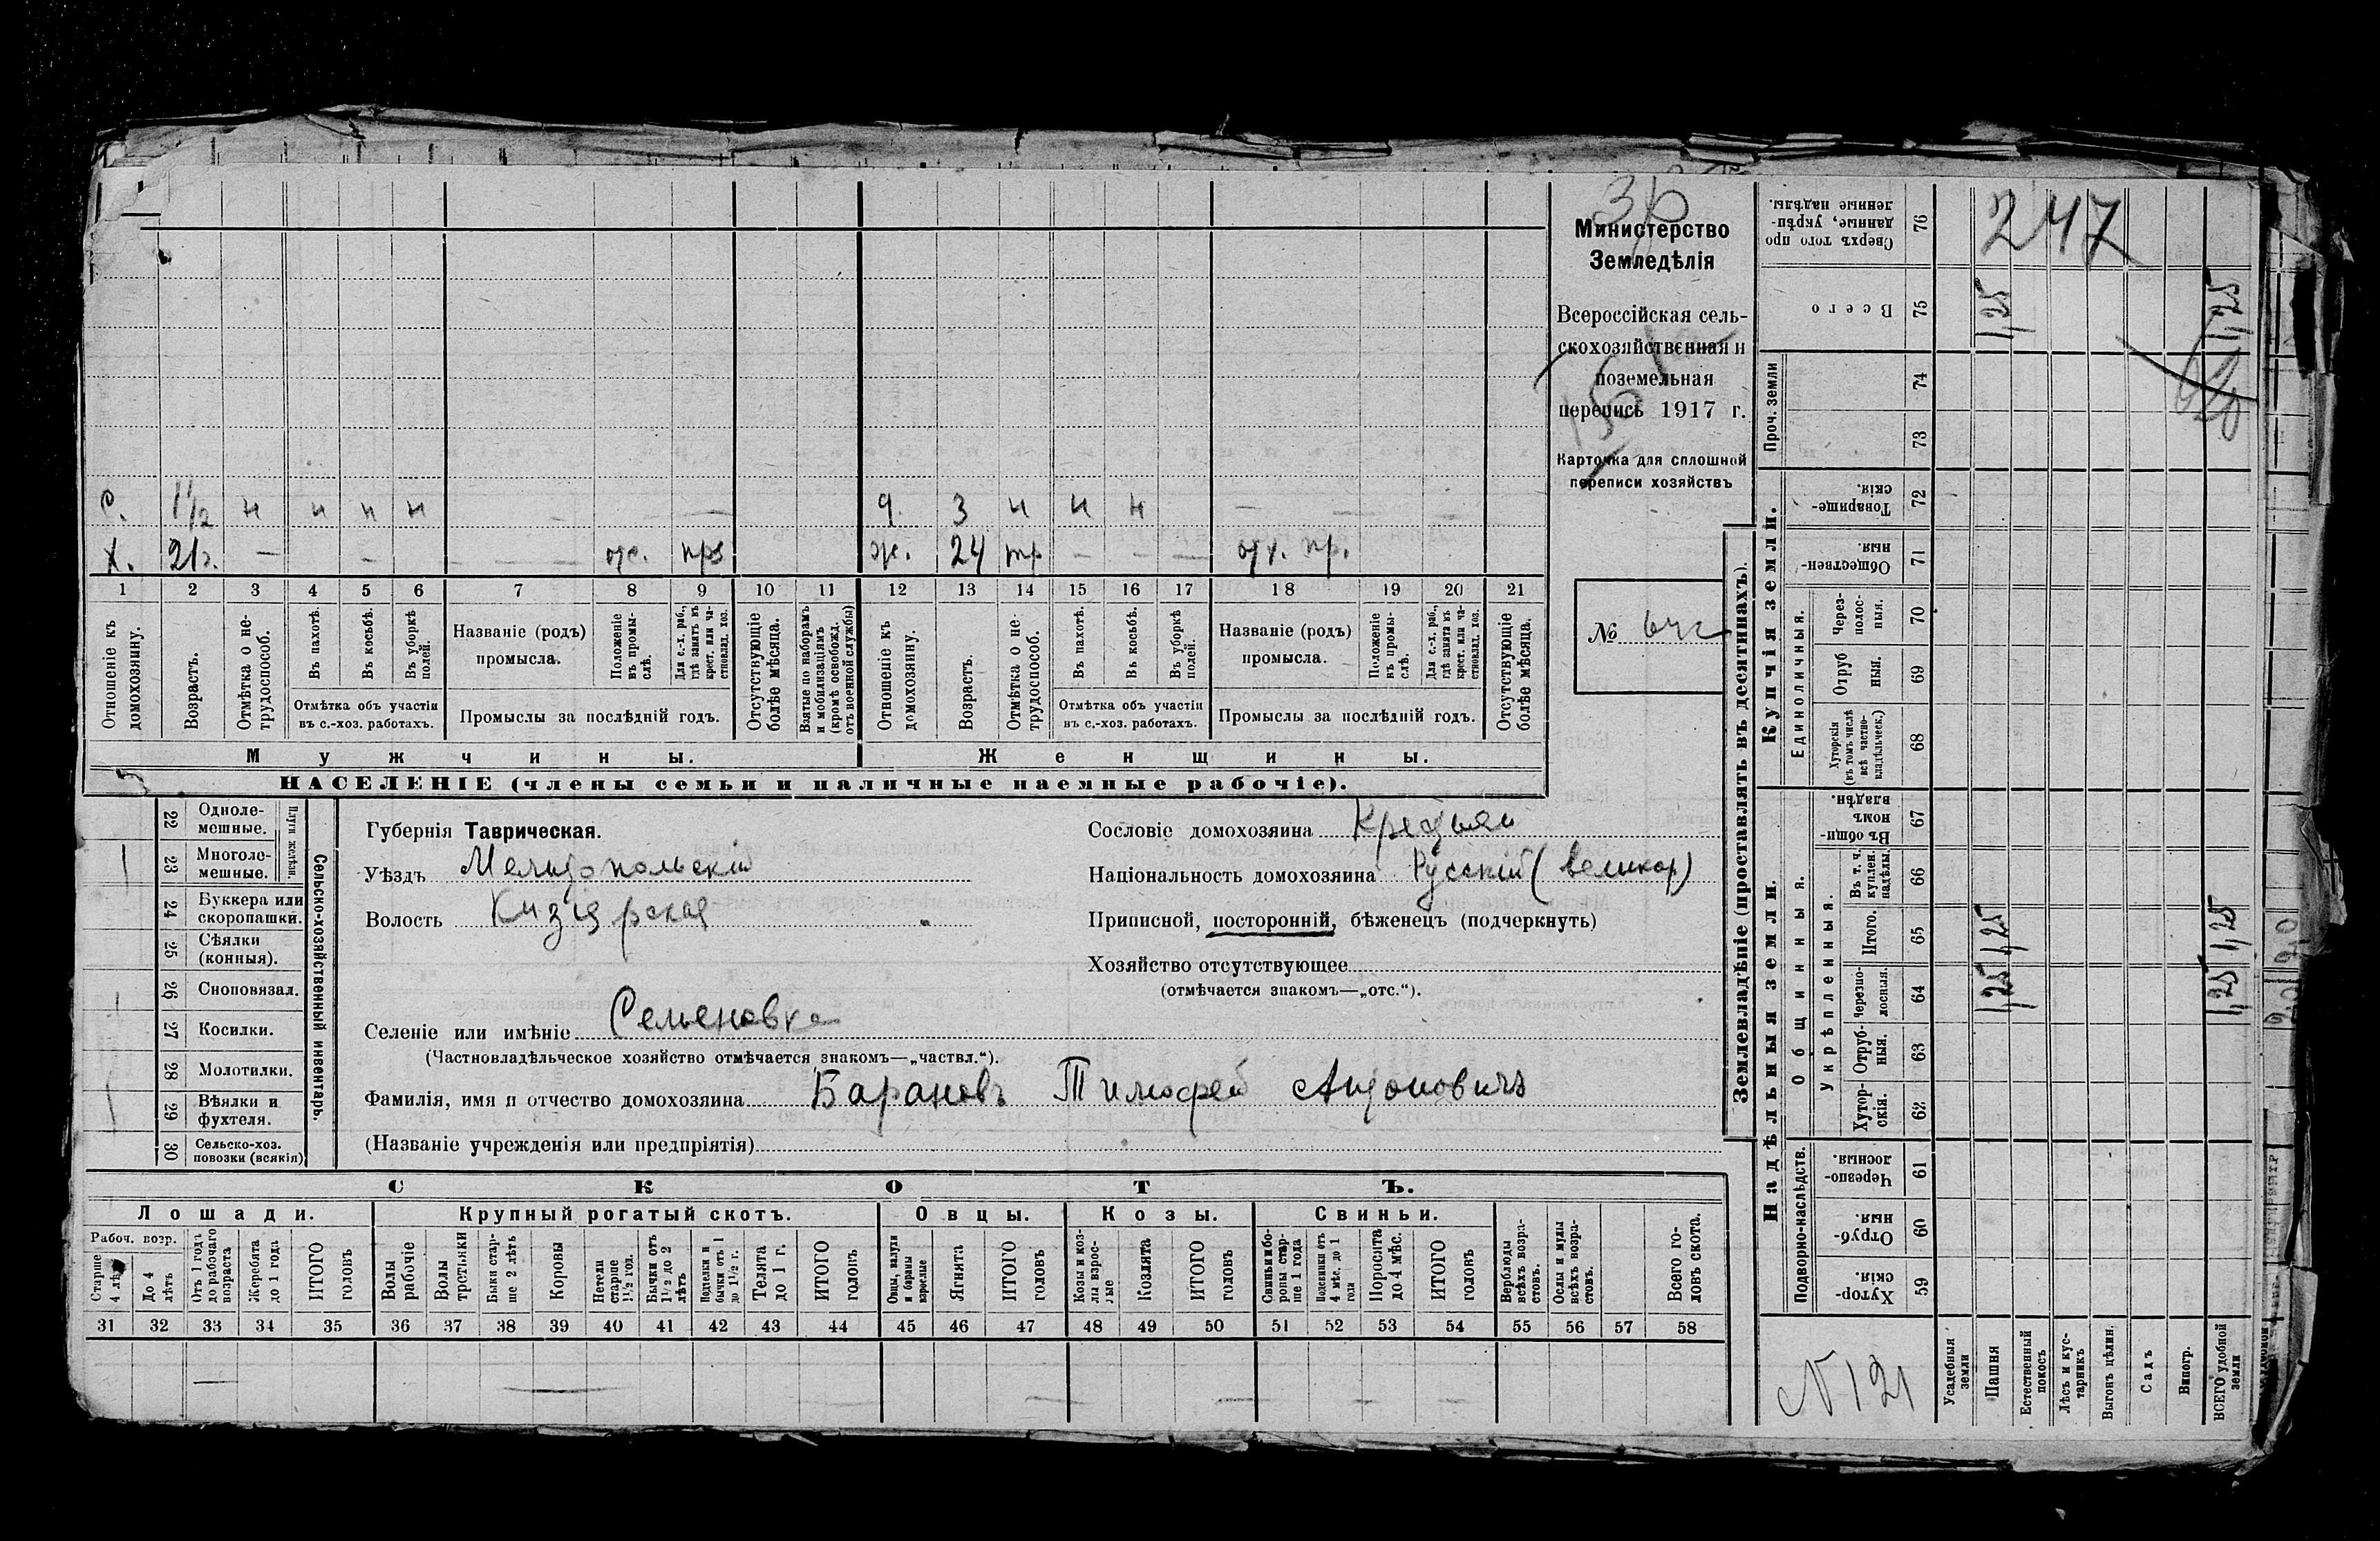 Министерство
Земледѣлія
Всероссійская сель-
скохозяйственная и
поземельная
перепись 1917 г.
Карточка для сплошной
переписи хозяйствъ
№
247
с. 1½ н н н н
д. 3 н н н
х. 21 г.
ж. 24
1 2 3 4 5 6 7 8 9 10 11 12 13 14 15 16 17 18 19 20 21
Отношеніе къ домохозяину.
Возрастъ.
Отмѣтка о не-трудоспособ.
Въ пахотѣ.
Въ косьбѣ.
Въ уборкѣ полей.
Отмѣтка объ участіи
въ с.-хоз. работахъ.
Названіе (родъ)
промысла.
Положеніе въ промы-слѣ.
Для с.-х. раб., гдѣ занятъ въ крест. или ча-стновлад. хоз.
Промыслы за послѣдній годъ.
Отсутствующіе болѣе мѣсяца.
Взятые по наборамъ и мобилизаціямъ (кромѣ освобожд. отъ военной службы)
Отношеніе къ домохозяину.
Возрастъ.
Отмѣтка о не-трудоспособ.
Въ пахотѣ.
Въ косьбѣ.
Въ уборкѣ полей.
Отмѣтка объ участіи
въ с.-хоз. работахъ.
Названіе (родъ)
промысла.
Положеніе въ промы-слѣ.
Для с.-х. раб., гдѣ занята въ крест. или ча-стновлад. хоз.
Промыслы за послѣдній годъ.
Отсутствующіе болѣе мѣсяца.
Мужчины.
Женщины.
НАСЕЛЕНІЕ (члены семьи и наличные наемные рабочіе).
Сельско-хозяйственный инвентарь.
Плуги желѣзн.
22 Одноле-мешные.
23 Многоле-мешные.
24 Буккера или скоропашки.
25 Сѣялки (конныя).
26 Сноповязал.
27 Косилки.
28 Молотилки.
29 Вѣялки и фухтеля.
30 Сельско-хоз. повозки (всякія)
Губернія Таврическая.
Уѣздъ Мелитопольскій
Волость Кизіярская
Селеніе или имѣніе Семеновка
(Частновладѣльческое хозяйство отмѣчается знакомъ—„частвл.“).
Фамилія, имя и отчество домохозяина Барановъ Тимофей Антоновичъ
(Названіе учрежденія или предпріятія)
Сословіе домохозяина Крестьян
Національность домохозяина Русскій (великор)
Приписной, посторонній, бѣженецъ (подчеркнуть)
Хозяйство отсутствующее
(отмѣчается знакомъ—„отс.“).
СКОТЪ.
Лошади.
Крупный рогатый скотъ.
Овцы.
Козы.
Свиньи.
Рабоч. возр.
Старше 4 лѣтъ
До 4 лѣтъ
Отъ 1 года до рабочаго возраста
Жеребята до 1 года
ИТОГО головъ
Волы рабочіе
Волы третьяки
Быки стар-ше 2 лѣтъ
Коровы
Нетели старше 1½ год.
Бычки отъ 1½ до 2 лѣтъ
Подтелки и бычки отъ 1 до 1½ г.
Телята до 1 г.
ИТОГО головъ
Овцы, валухи и бараны взрослые
Ягнята
ИТОГО головъ
Козы и коз-лы взрос-лые
Козлята
ИТОГО головъ
Свиньи и бо-ровы стар-ше 1 года
Подсвинки отъ 4 мѣс. до 1 года
Поросята до 4 мѣс.
ИТОГО головъ
Верблюды всѣхъ возра-стовъ.
Ослы и мулы всѣхъ возра-стовъ.
Всего го-ловъ скота.
31 32 33 34 35 36 37 38 39 40 41 42 43 44 45 46 47 48 49 50 51 52 53 54 55 56 57 58
Землевладѣніе (проставлять въ десятинахъ).
Надѣльныя земли.
Купчія земли.
Проч. земли
Подворно-наслѣдств.
Общинныя.
Укрѣпленныя.
Единоличныя.
Сверхъ того про данные, укрѣп-ленные надѣлы. 76
Всего 75 1,25 1,25
74
73
Товарище-скія. 72
Обществен-ныя. 71
Через-полос-ныя. 70
Отруб ныя. 69
Хуторскія (въ томъ числѣ всѣ частно-владѣльческ.) 68
Въ общи-номъ владѣн. 67
Въ т. ч. куплен. надѣлы. 66
Итого. 65 1,25 1,25
Черезпо-лосныя. 64 1,25 1,25
Отруб-ныя. 63
Хутор-скія. 62
Черезпо-лосныя. 61
Отруб-ныя. 60
Хутор-скія. 59
Усадебныя земли
Пашня
Естественный покосъ
Лѣсъ и кус-тарникъ
Выгонъ цѣлин.
Садъ
Виногр.
ВСЕГО удобной земли
N 121